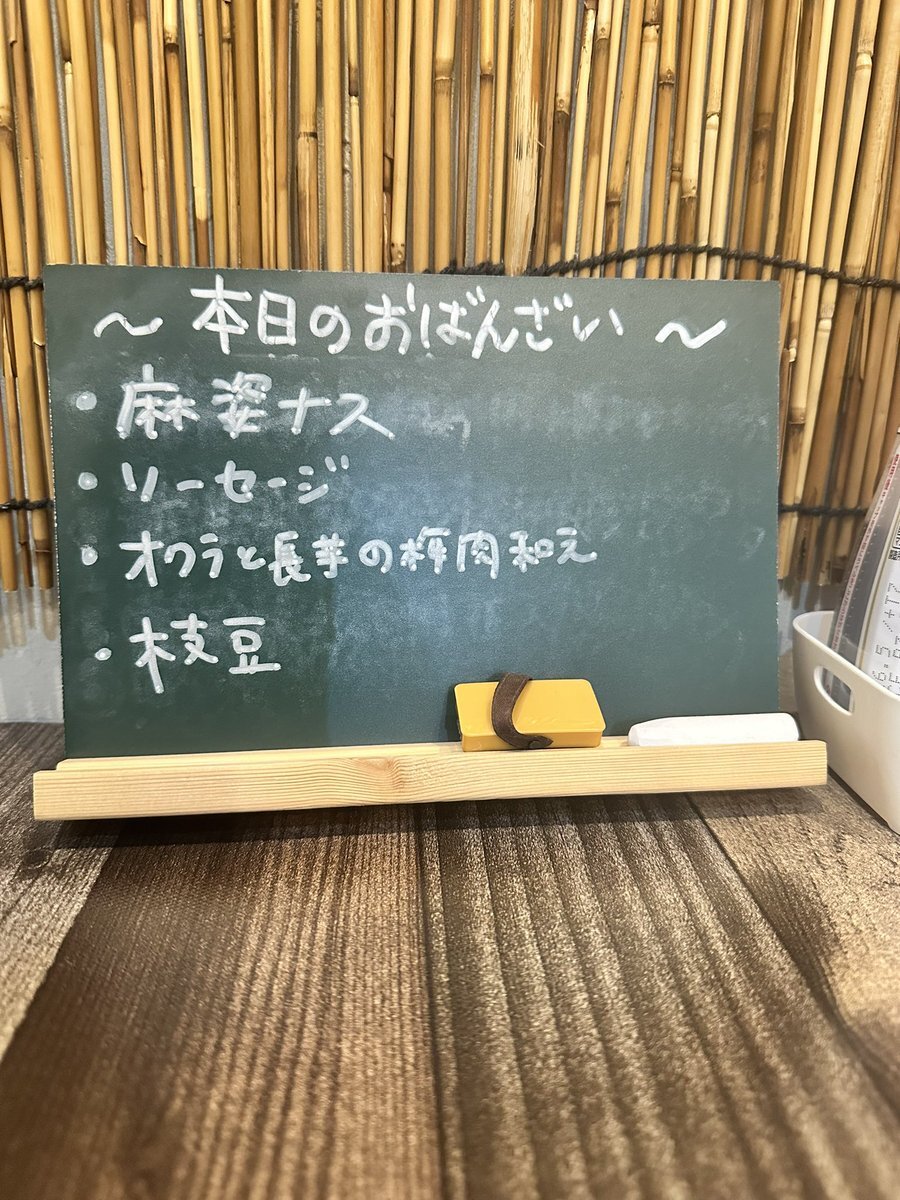 ～ 本日のおばんざい ～
・麻婆ナス
・ソーセージ
・オクラと長芋の梅肉和え
・枝豆